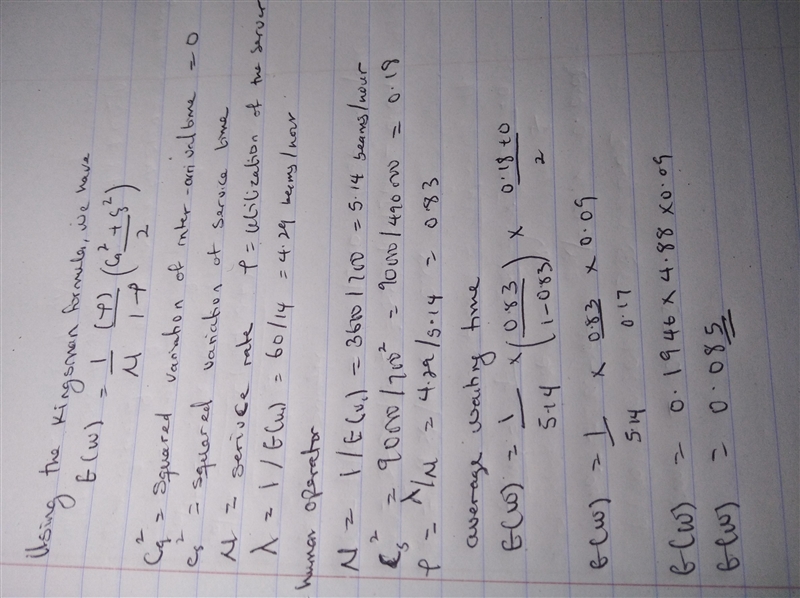 Using the Kingsman formula, we have
E(W) = 1/μ (ρ)/1-ρ (Ca² + Cs²/2)
Ca² = Squared variation of inter-arrival time = 0
Cs² = squared variation of service time
μ = serivce rate ρ = utilization of the server
λ = 1/E(u) = 60/14 = 4.29 beams/hour
human operator
μ = 1/E(Vi) = 3600/700 = 5.14 beams/hour
Cs² = 90000/700² = 90000/490000 = 0.18
ρ = λ/μ = 4.29/5.14 = 0.83
average waiting time
E(W) = 1/5.14 × (0.83/1-0.83) × 0.18+0/2
E(W) = 1/5.14 × 0.83/0.17 × 0.09
E(W) = 0.1946 × 4.88 × 0.09
E(W) = 0.085